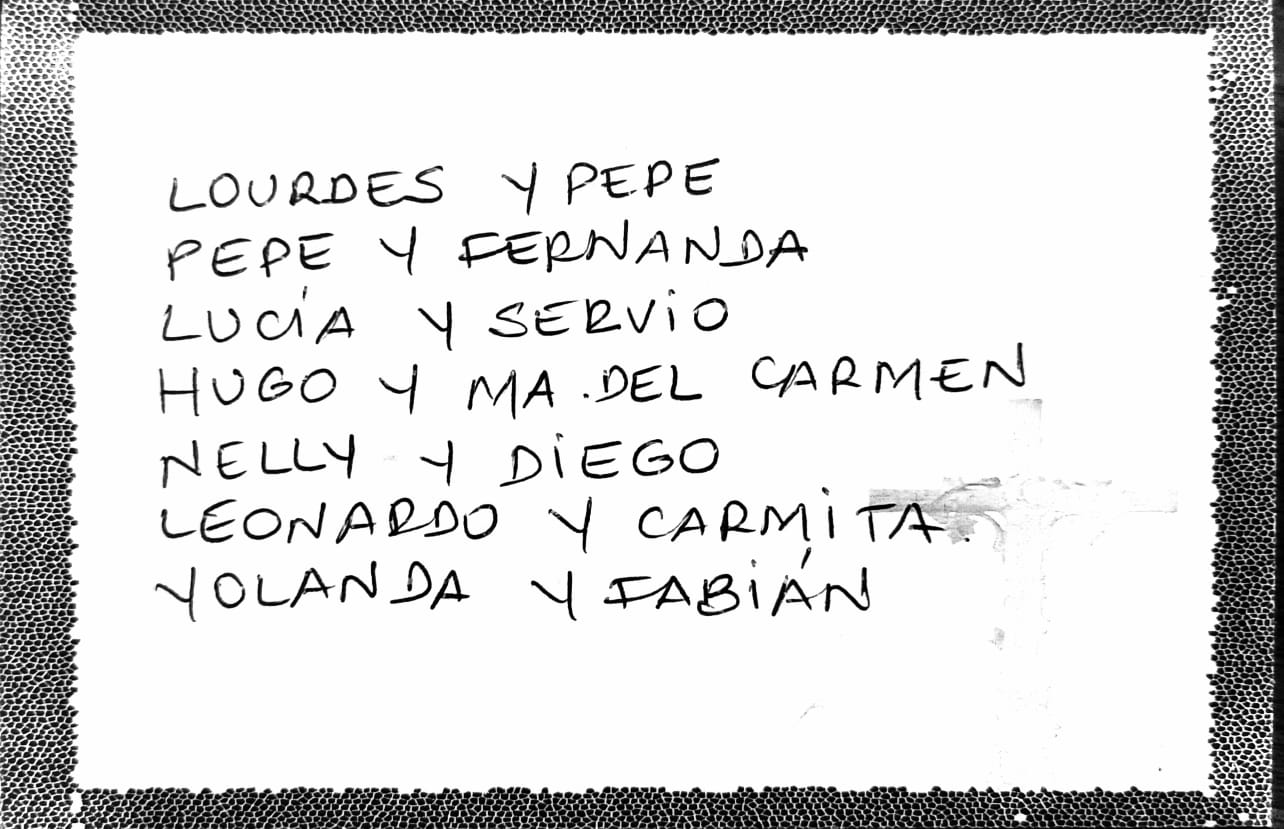 LOURDES Y PEPE
PEPE Y FERNANDA
LUCÍA Y SERVIO
HUGO Y MA. DEL CARMEN
NELLY Y DIEGO
LEONARDO Y CARMITA.
YOLANDA Y FABIÁN